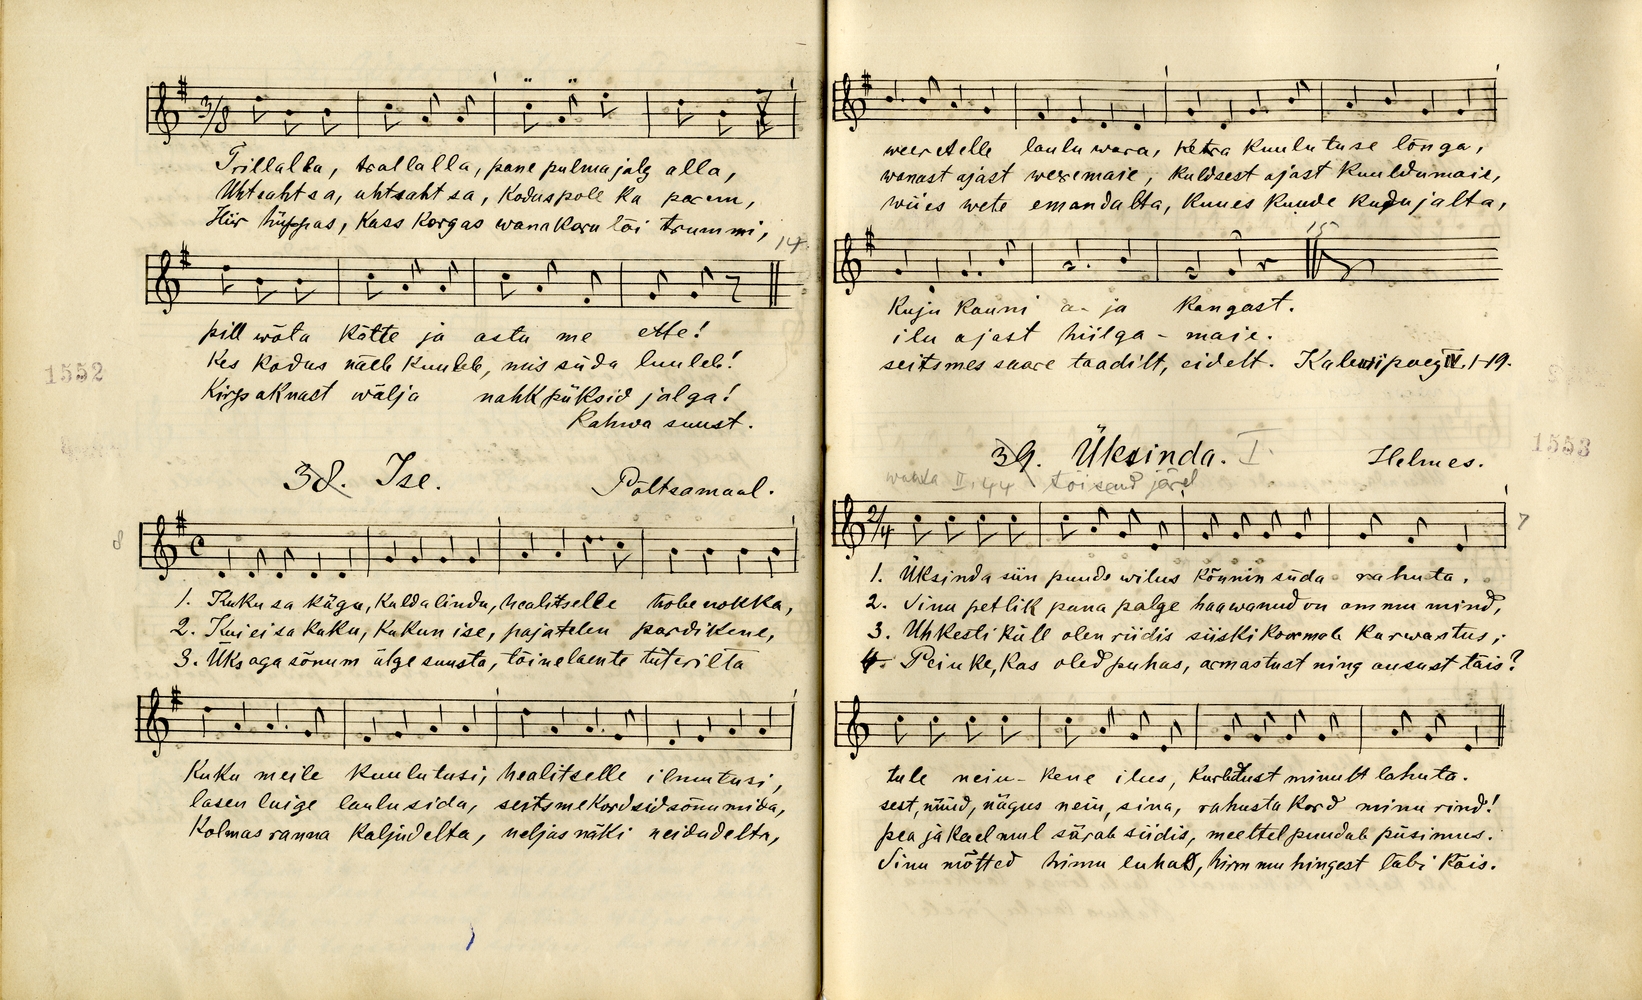 Trillalla, trallalla, pane pulmajalg alla,
Uhtsahtsa, uhtsahtsa, koduspole ka parem,
Hiir hüppas, kass kargas wana karu lõi trummi,
14.
pill wõta kätte ja astu me ette!
Kes kodus näeb kuuleb, mis süda luuleb!
Kirp aknast wälja nahk püksid jalga!
Rahwa suust.
1552
38. Ise.
Põltsamaal.
8
1. Kuku sa kägu, kuldalindu, healitselle hõbenokka,
2. Kui ei sa kuku, kukun ise, pajatelen pardikene,
3. Üks aga sõnum ülge suusta, tõine laente tüterilta
Kuku meile kuulutusi, healitselle ilmutusi,
lasen luige laulusida, seitsmekordsid sõnumida,
Kolmas ranna kaljudelta, neljas näki neidudelta,
weeretelle laulu wara, ketra kuulutuse lõnga,
wanast ajast weeremaie, kuldsest ajast kuuldumaie,
wiies wete emandalta, kuues kuude kudujalta,
15
kuju kauni a- ja kangast.
ilu ajast hiilga- maie.
seitsmes saare taadilt, eidelt. Kalewipoeg IV. 1-19.
39. Üksinda. I.
Helmes.
1553
waata II. 44 tõisend järel
7
1. Üksinda siin puude wilus kõnnin süda rahuta,
2. Sinu petlik puna palge haawanud on ammu mind,
3. Uhkesti küll olen riidis siiski koormab kurwastus;
4. Peiuke, kas oled puhas, armastust ning ausust täis?
tule neiu- kene ilus, kurbtust minult lahuta.
sest, nüüd, nägus neiu, sina, rahusta kord minu rind!
pea ja kael mul särab siidis, meeltel puudub püsimus.
Sinu mõtted himu luhab, hirm mu hingest läbi käis.